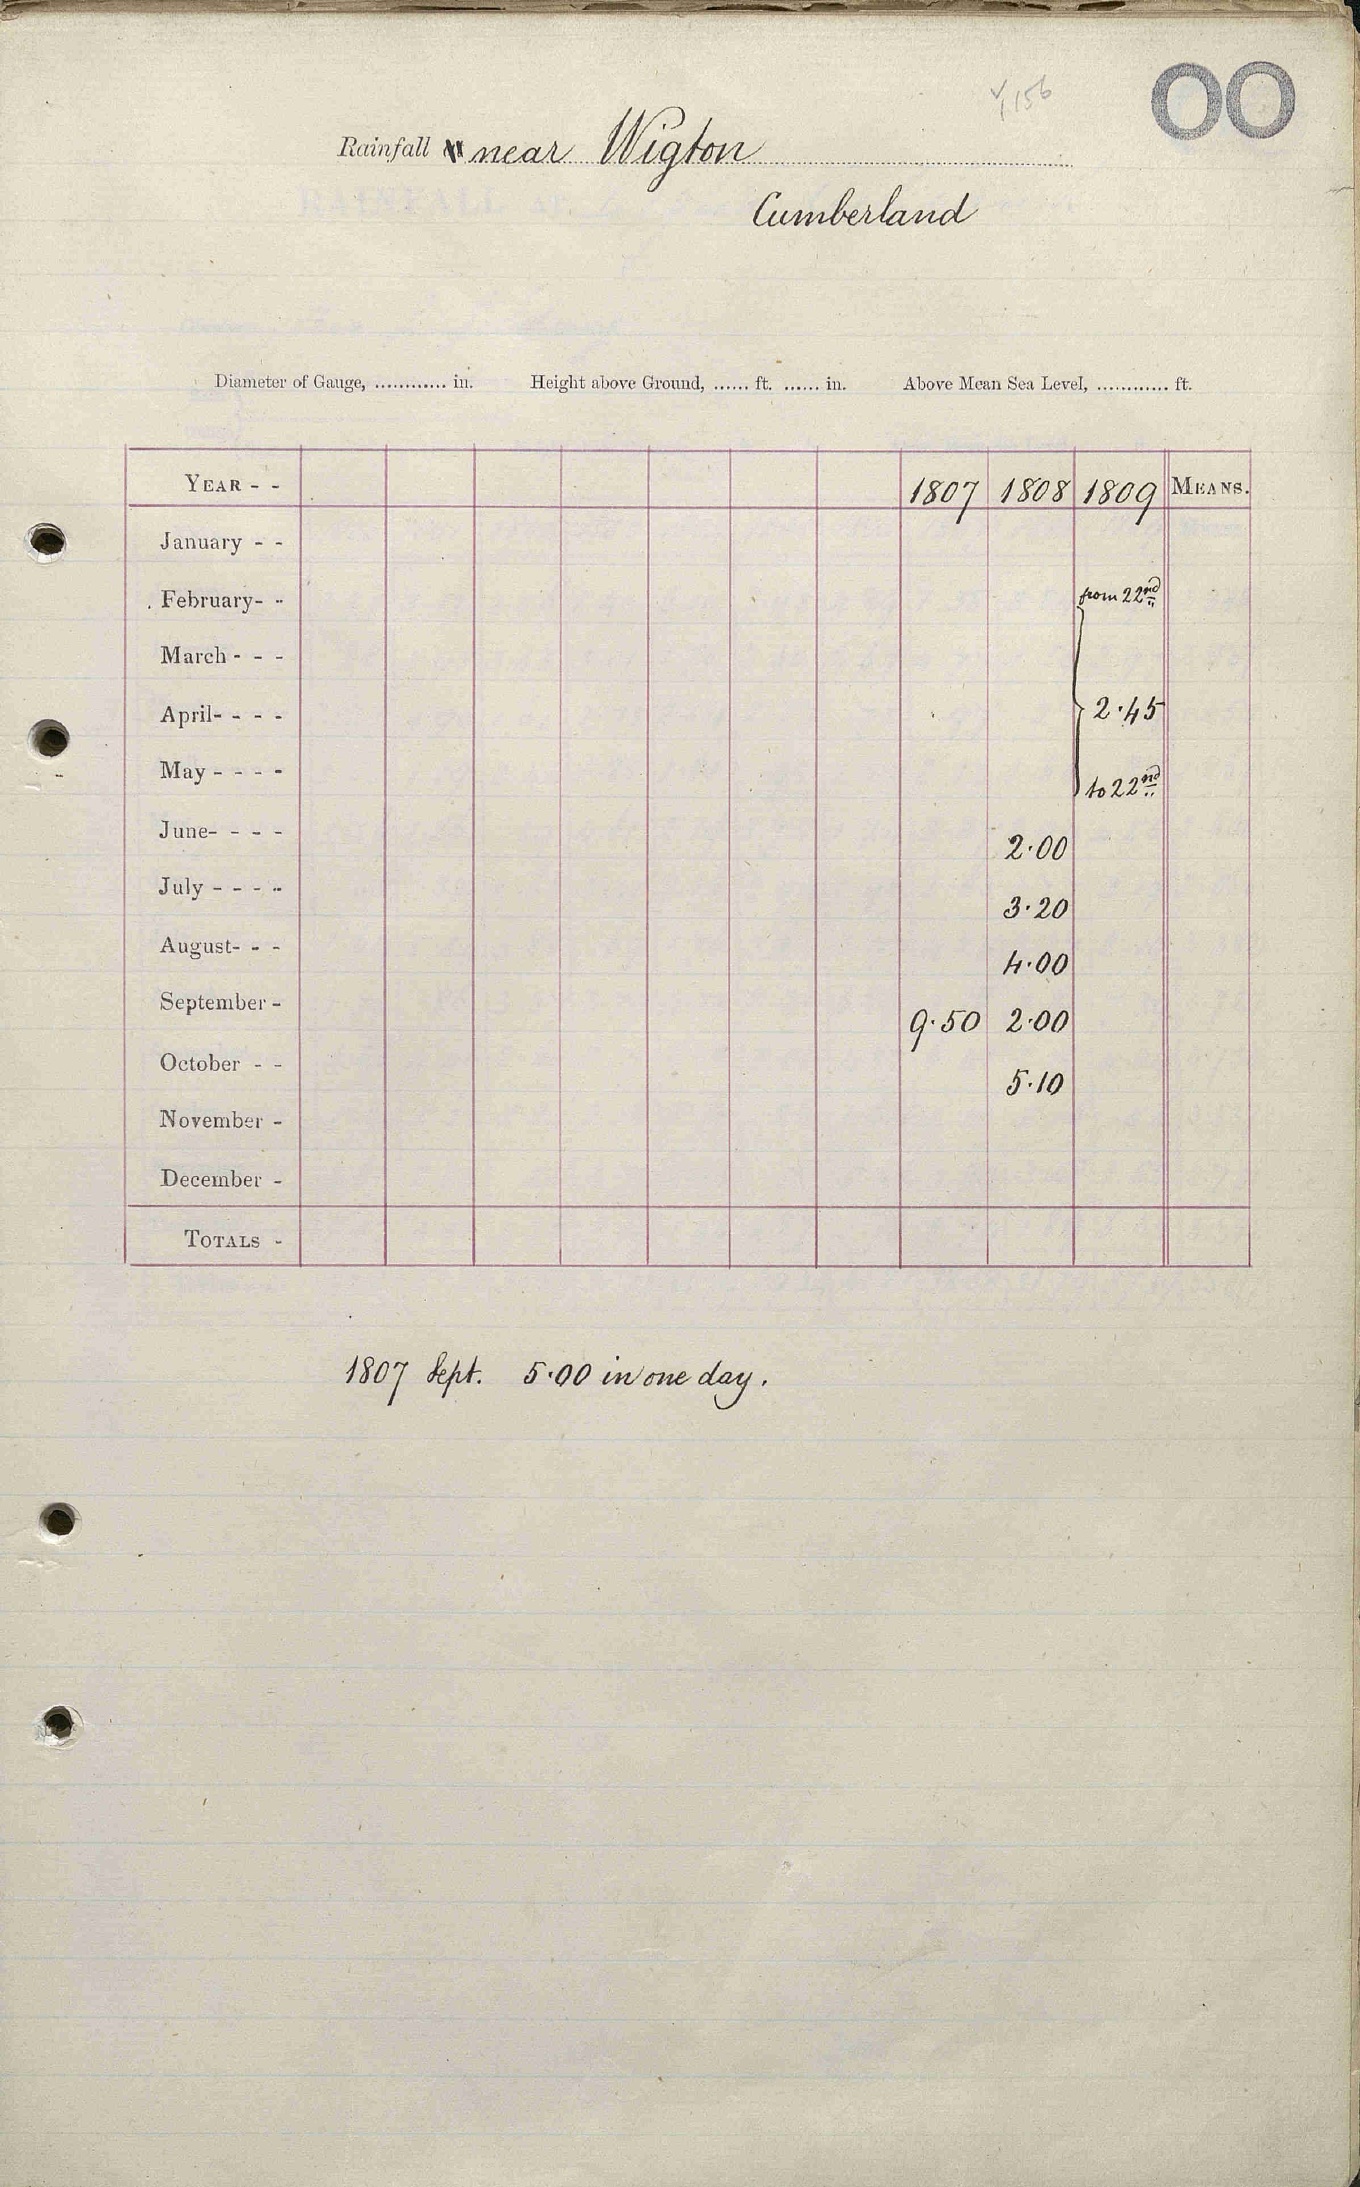 00
Rainfall near Wigton
Cumberland
Diameter of Gauge, ............ in. Height above Ground, ...... ft. ...... in. Above Mean Sea Level, ............ ft.
YEAR - - 1807 1808 1809 MEANS.
January - -
February- - from 22nd
March - - -
April- - - - 2.45
May - - - - to 22nd
June- - - - 2.00
July - - - - 3.20
August- - - 4.00
September - 9.50 2.00
October - - 5.10
November -
December -
TOTALS -
1807 Sept. 5.00 in one day.